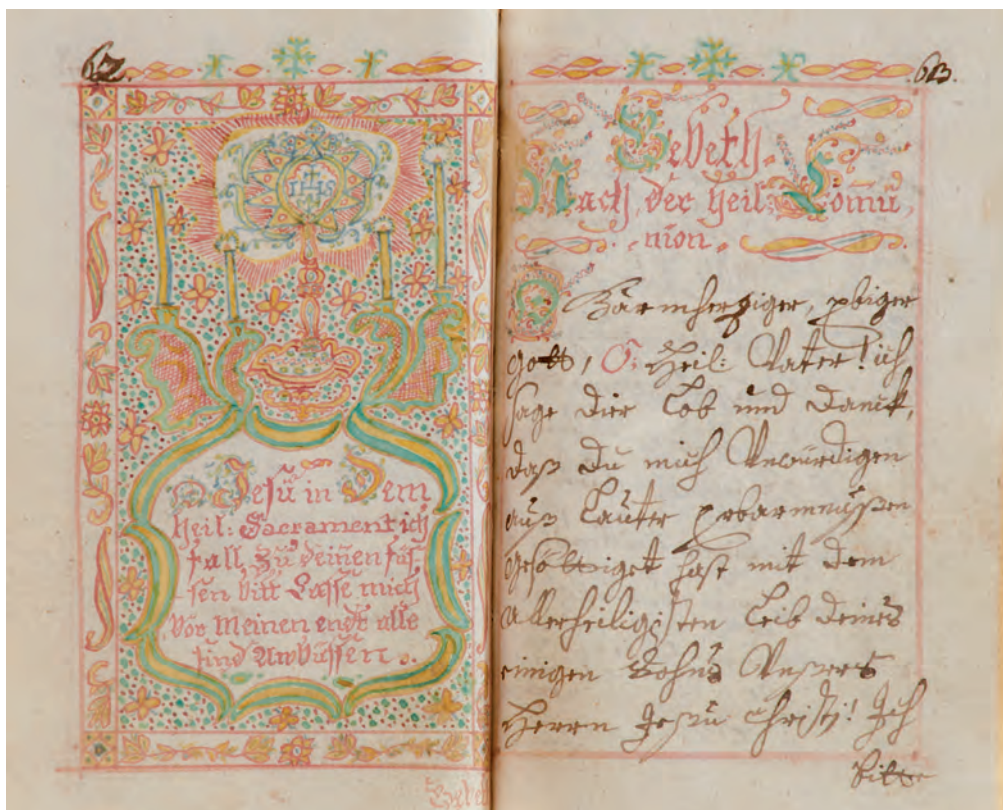 62.
IHS
O Jesu in Dem
Heil: Sacrament ich
fall zu deinen füs,
sen bitt Lasse mich
Vor meinen endt alle
sünd Abbüssen.
Gebet
63.
Gebeth
Nach der Heil: Comu,
nion.
O Barmhertziger, ewiger
Gott, O: Heil: Vatter! ich
sage dier Lob und Danck,
daß du mich Unwürdigen
auß lauter
gesättiget hast mit dem
Allerheiligisten Leib deines
einigen Sohns Unsers
Herrn Jesu Christi! Ich
bitte